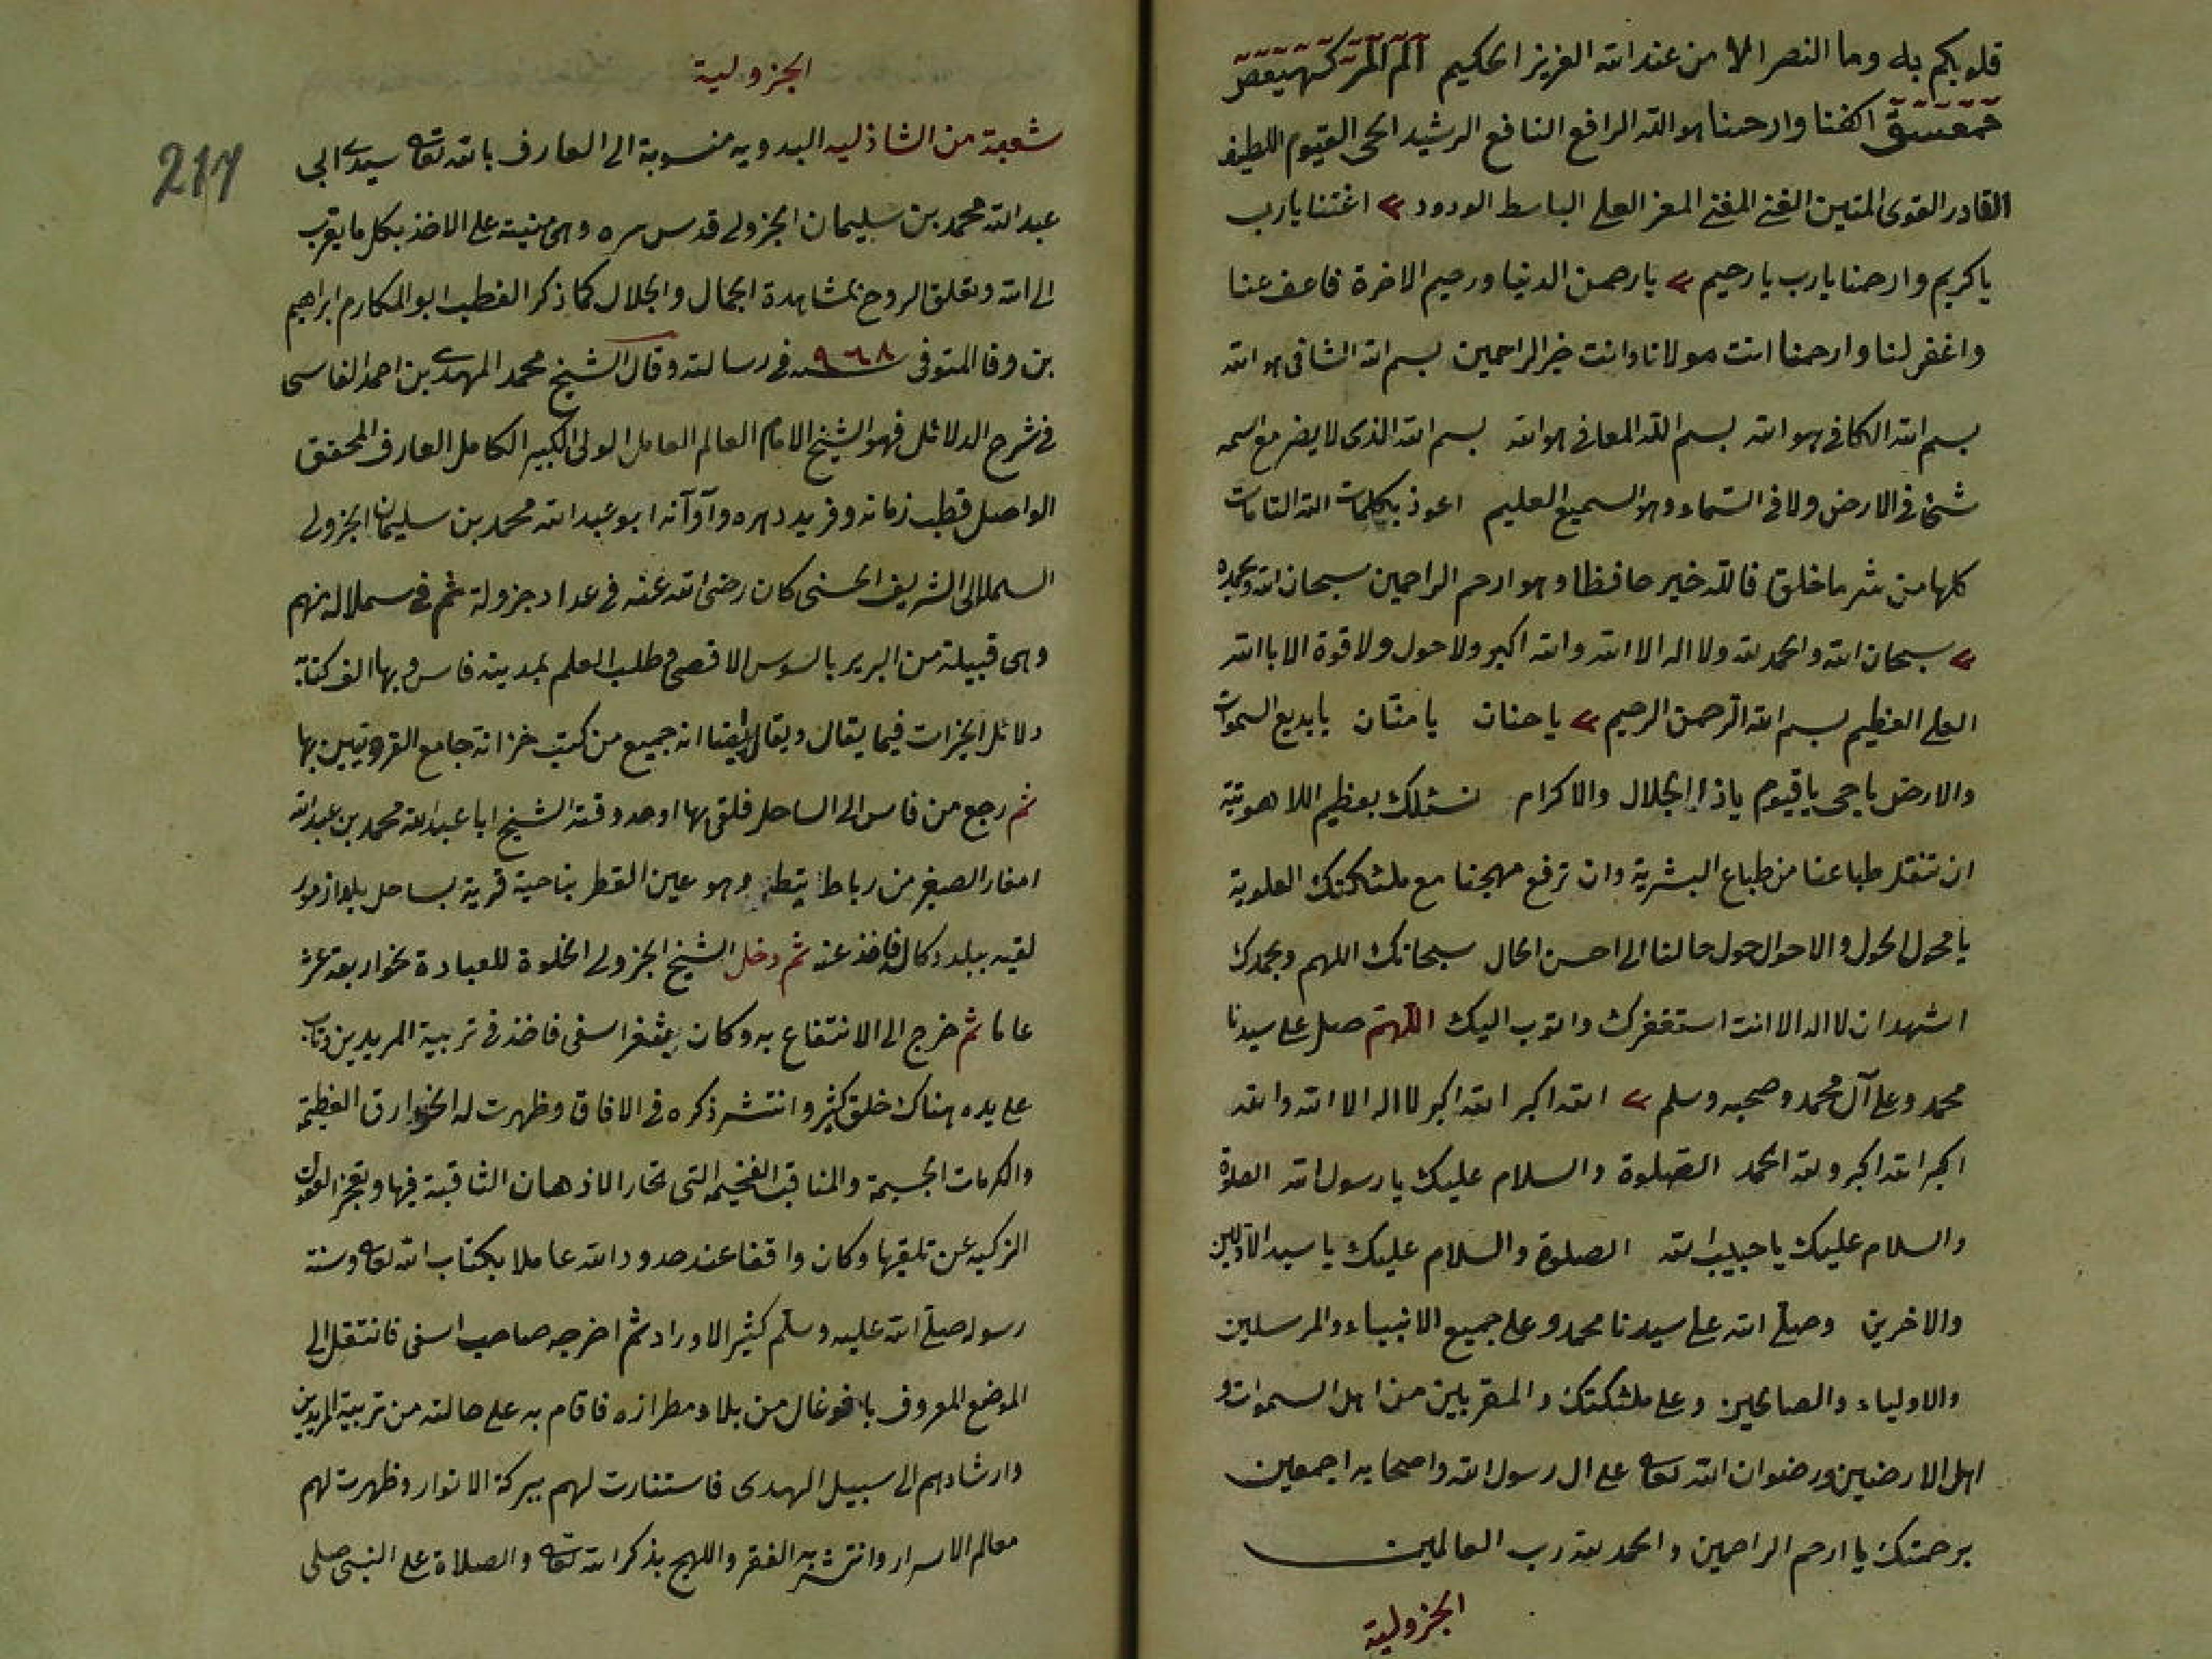 قلوبكم به وما النصر الا من عند الله العزيز الحكيم الم المر كهيعص
حمعسق اكفنا وارحمنا هو الله الرافع النافع الرشيد الحى القيوم اللطيف
القادر القوى المتين الغنى المغنى المعز العلى الباسط الودود اغثنا يا رب
يا كريم وارحمنا يا رب يا رحيم يا رحمن الدنيا ورحيم الاخرة فاعف عنا
واغفر لنا وارحمنا انت مولانا وانت خير الراحمين بسم الله الشافى هو الله
بسم الله الكافى هو الله بسم الله المعافى هو الله بسم الله الذى لا يضر مع اسمه
شئ فى الارض ولا فى السماء وهو السميع العليم اعوذ بكلمات الله التامات
كلها من شر ما خلق فالله خير حافظا وهو ارحم الراحمين سبحان الله وبحمده
سبحان الله والحمد لله ولا اله الا الله والله اكبر ولا حول ولا قوة الا بالله
العلى العظيم بسم الله الرحمن الرحيم يا حنان يا منان يا بديع السموات
والارض يا حى يا قيوم يا ذا الجلال والاكرام نسئلك بعظيم اللاهوتية
ان تنقل طباعنا من طباع البشرية وان ترفع مهجنا مع ملئكتك العلوية
يا محول الحول والاحوال حول حالنا الى احسن الحال سبحانك اللهم وبحمدك
اشهد ان لا اله الا انت استغفرك واتوب اليك اللهم صل على سيدنا
محمد وعلى آل محمد وصحبه وسلم الله اكبر الله اكبر لا اله الا الله والله
اكبر الله اكبر ولله الحمد الصلوة والسلام عليك يا رسول الله الصلوة
والسلام عليك يا حبيب الله الصلوة والسلام عليك يا سيد الاولين
والاخرين وصلى الله على سيدنا محمد وعلى جميع الانبياء والمرسلين
والاولياء والصالحين وعلى ملئكتك والمقربين من اهل السموات و
اهل الارضين ورضوان الله تعالى على ال رسول الله واصحابه اجمعين
برحمتك يا ارحم الراحمين والحمد لله رب العالمين
الجزولية
الجزولية
217
شعبة من الشاذليه البدويه منسوبة الى العارف بالله تعالى سيدى ابى
عبد الله محمد بن سليمان الجزولى قدس سره وهى مبنية على الاخذ بكل ما يقرب
الى الله وتعلق الروح بمشاهدة الجمال والجلال كما ذكر القطب ابو المكارم ابراهيم
بن وفا المتوفى سنة ٩٦٨ فى رسالته وقال الشيخ محمد المهدى بن احمد الفاسى
فى شرح الدلائل فهو الشيخ الامام العالم العامل الولى الكبير الكامل العارف المحقق
الواصل قطب زمانه وفريد دهره وآوآنه ابو عبد الله محمد بن سليمان الجزولى
السملالى الشريف الحسنى كان رضى الله عنه فى عداد جزولة ثم فى سملالة منهم
وهى قبيلة من البربر بالسوس الاقصى طلب العلم بمدينة فاس وبها الف كتابه
دلائل الخيرات فيما يقال ويقال ايضا انه جميع من كتب خزانة جامع القرويين بها
ثم رجع من فاس الى الساحل فلقى بها اوحد وقته الشيخ ابا عبد الله محمد بن عبد الله
امغار الصغير من رباط تيط وهو عين القطر بناحية قرية بساحل بلد ازمور
لقيه ببلد دكالة فاخذ عنه ثم دخل الشيخ الجزولى الخلوة للعبادة نحو اربعة عشر
عاما ثم خرج الى الانتفاع به وكان بثغر اسفى فاخذ فى تربية المريدين وتاب
على يده هناك خلق كثير وانتشر ذكره فى الافاق وظهرت له الخوارق العظيمة
والكرمات الجسيمة والمناقب الفخيمه التى تحار الاذهان الثاقبة فيها وتعجز العقول
الزكيه عن تلقيها وكان واقفا عند حدود الله عاملا بكتاب الله تعالى وسنة
رسوله صلى الله عليه وسلم كثير الاوراد ثم اخرجه صاحب اسفى فانتقل الى
الموضع المعروف بافوغال من بلاد مطرازه فاقام به على حالته من تربية المريدين
وارشادهم الى سبيل الهدى فاستنارت لهم ببركة الانوار وظهرت لهم
معالم الاسرار وانتشر به الفقر واللهج بذكر الله تعالى والصلاة على النبى صلى